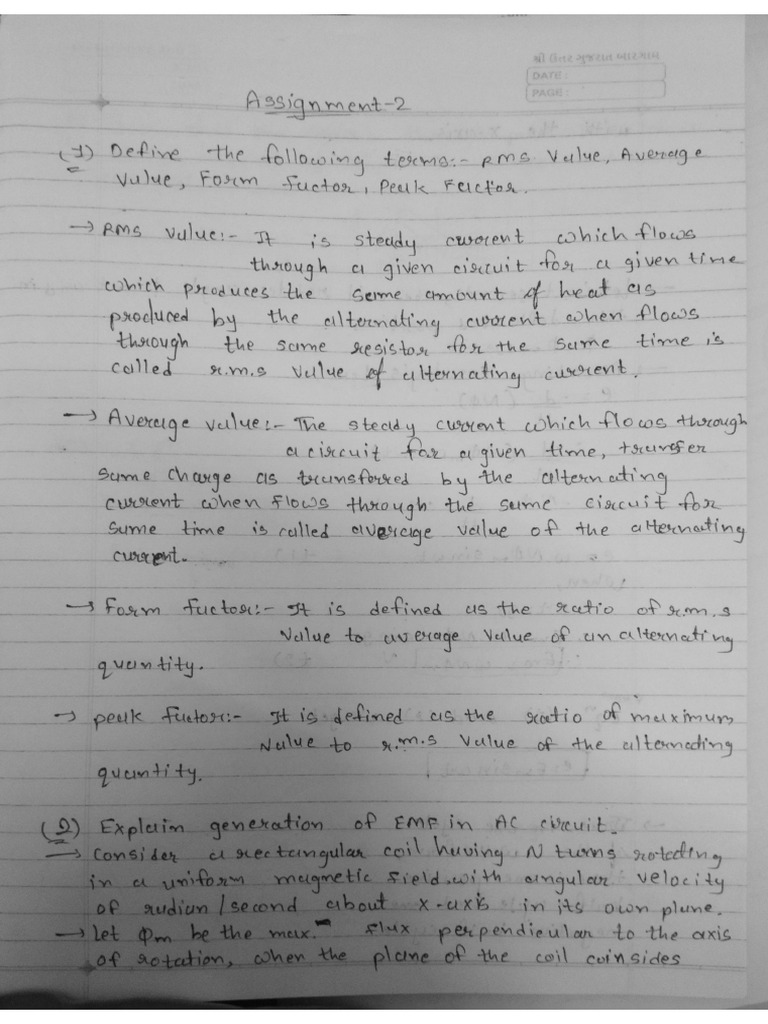 DATE :
PAGE :
Assignment-2
(1) Define the following terms:- RMS Value, Average
Value, Form Factor, Peak Factor.
→ RMS Value:- It is steady current which flows
through a given circuit for a given time
which produces the same amount of heat as
produced by the alternating current when flows
through the same resistor for the same time is
called r.m.s value of alternating current.
→ Average value:- The steady current which flows through
a circuit for a given time, transfer
same charge as transferred by the alternating
current when flows through the same circuit for
same time is called average value of the alternating
current.
→ Form factor:- It is defined as the ratio of r.m.s
Value to average Value of an alternating
quantity.
→ peak factor:- It is defined as the ratio of maximum
Value to r.m.s Value of the alternating
quantity.
(2) Explain generation of EMF in AC circuit.
→ Consider a rectangular coil having N turns rotating
in a uniform magnetic field. with angular velocity
of radian/second about x-axis in its own plane.
→ let Φm be the max. flux perpendicular to the axis
of rotation, when the plane of the coil coinsides